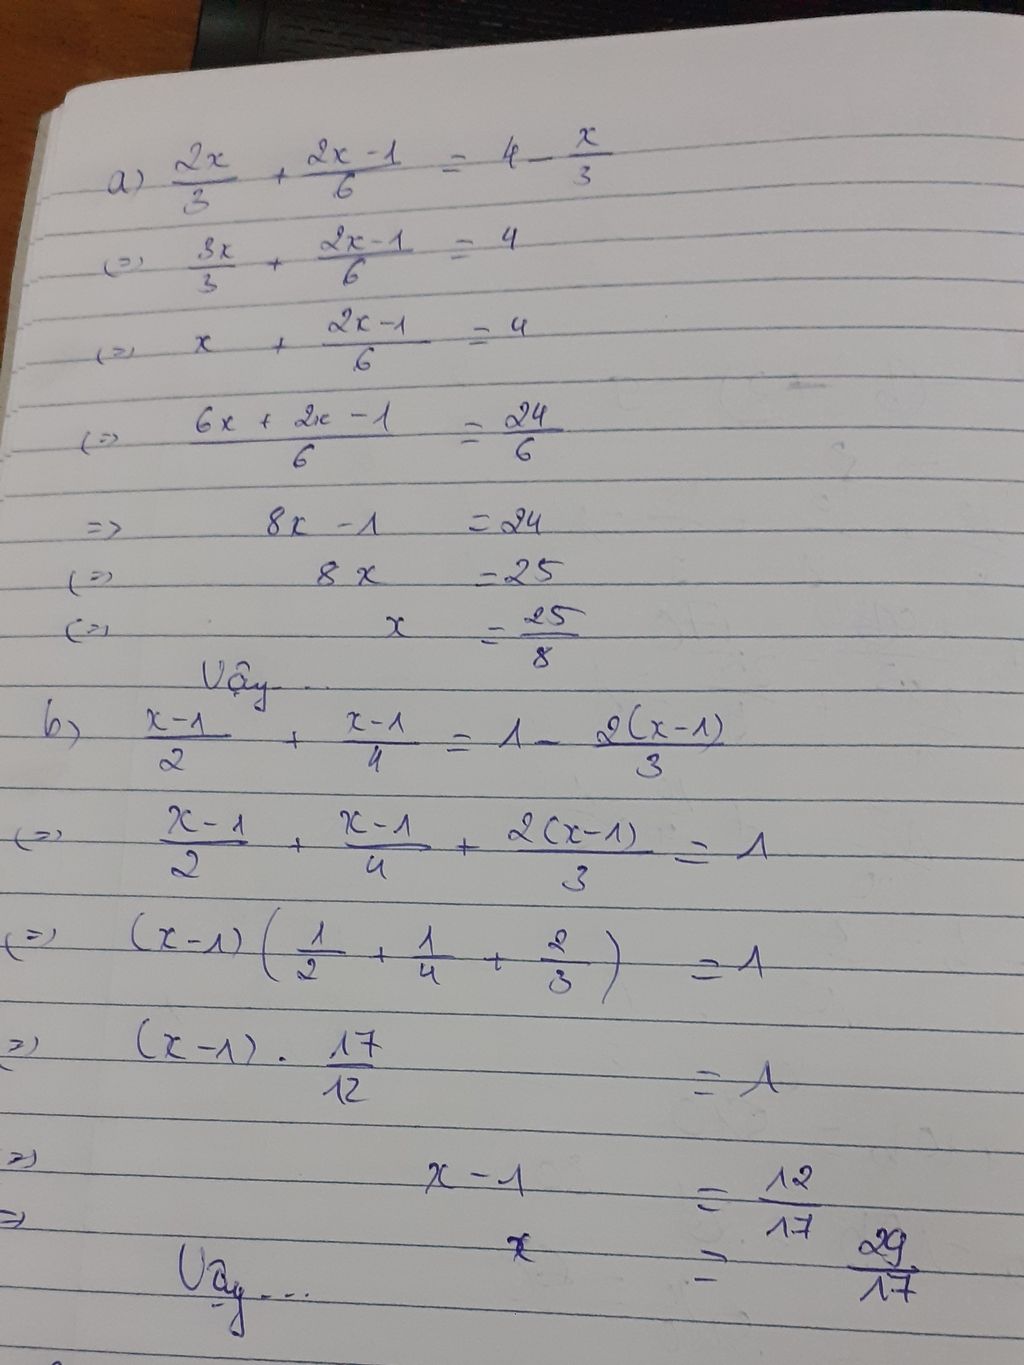 a) 2x/3 + (2x-1)/6 = 4 - x/3
(=) 3x/3 + (2x-1)/6 = 4
(=) x + (2x-1)/6 = 4
(=) (6x + 2x - 1)/6 = 24/6
=> 8x - 1 = 24
(=) 8x = 25
(=) x = 25/8
Vậy...
b) (x-1)/2 + (x-1)/4 = 1 - 2(x-1)/3
(=) (x-1)/2 + (x-1)/4 + 2(x-1)/3 = 1
(=) (x-1)(1/2 + 1/4 + 2/3) = 1
=) (x-1) . 17/12 = 1
=) x - 1 = 12/17
=) x = 29/17
Vậy...